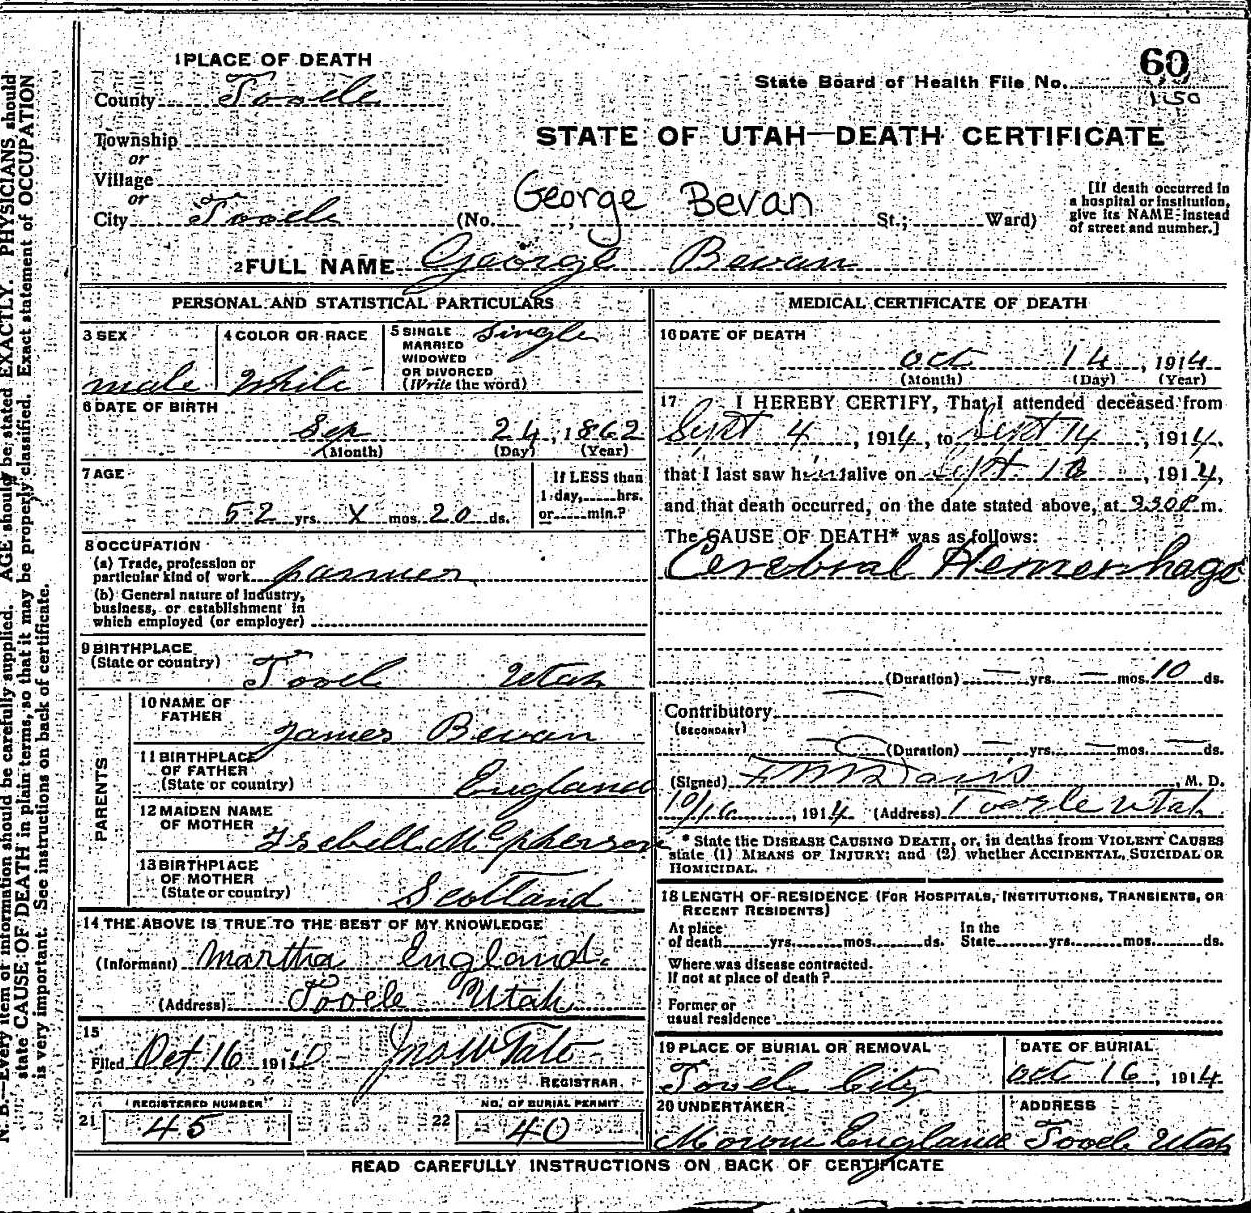 60
State Board of Health File No.
1150
STATE OF UTAH—DEATH CERTIFICATE
1 PLACE OF DEATH
County Tooele
Township
or
Village
or
City Tooele (No. George Bevan St.; Ward)
[If death occurred in
a hospital or institution,
give its NAME instead
of street and number.]
2 FULL NAME George Bevan
PERSONAL AND STATISTICAL PARTICULARS
3 SEX
male
4 COLOR OR RACE
White
5 SINGLE
MARRIED
WIDOWED
OR DIVORCED
(Write the word)
Single
6 DATE OF BIRTH
Sep 24, 1862
(Month) (Day) (Year)
7 AGE
52 yrs. X mos. 20 ds.
If LESS than
1 day, hrs.
or min.?
8 OCCUPATION
(a) Trade, profession or
particular kind of work farmer
(b) General nature of industry,
business, or establishment in
which employed (or employer)
9 BIRTHPLACE
(State or country)
Tooele Utah
PARENTS
10 NAME OF
FATHER
James Bevan
11 BIRTHPLACE
OF FATHER
(State or country)
England
12 MAIDEN NAME
OF MOTHER
Isebell McPherson
13 BIRTHPLACE
OF MOTHER
(State or country)
Scotland
14 THE ABOVE IS TRUE TO THE BEST OF MY KNOWLEDGE
(Informant) Martha England.
(Address) Tooele Utah
15
Filed Oct 16 191 Jno W Tate
REGISTRAR.
21 REGISTERED NUMBER
45
22 NO. OF BURIAL PERMIT
40
MEDICAL CERTIFICATE OF DEATH
16 DATE OF DEATH
Oct 14, 1914
(Month) (Day) (Year)
17 I HEREBY CERTIFY, That I attended deceased from
Sept 4, 1914, to Sept 14, 1914,
that I last saw him alive on Sept. 1914,
and that death occurred, on the date stated above, at m.
The CAUSE OF DEATH* was as follows:
Cerebral Hemerrhage
(Duration) — yrs. — mos. 10 ds.
Contributory
(SECONDARY)
(Duration) — yrs. — mos. — ds.
(Signed) Davis, M. D.
10/16, 1914 (Address) Tooele Utah
* State the DISEASE CAUSING DEATH, or, in deaths from VIOLENT CAUSES
state (1) MEANS OF INJURY; and (2) whether ACCIDENTAL, SUICIDAL OR
HOMICIDAL.
18 LENGTH OF RESIDENCE (FOR HOSPITALS, INSTITUTIONS, TRANSIENTS, OR
RECENT RESIDENTS)
At place
of death yrs. mos. ds.
In the
State yrs. mos. ds.
Where was disease contracted.
If not at place of death?
Former or
usual residence
19 PLACE OF BURIAL OR REMOVAL
Tooele City
DATE OF BURIAL
Oct 16, 1914
20 UNDERTAKER
England
ADDRESS
Tooele Utah
READ CAREFULLY INSTRUCTIONS ON BACK OF CERTIFICATE
N. B.—Every item of information should be carefully supplied. AGE should be stated EXACTLY. PHYSICIANS should
state CAUSE OF DEATH in plain terms, so that it may be properly classified. Exact statement of OCCUPATION
is very important. See instructions on back of certificate.